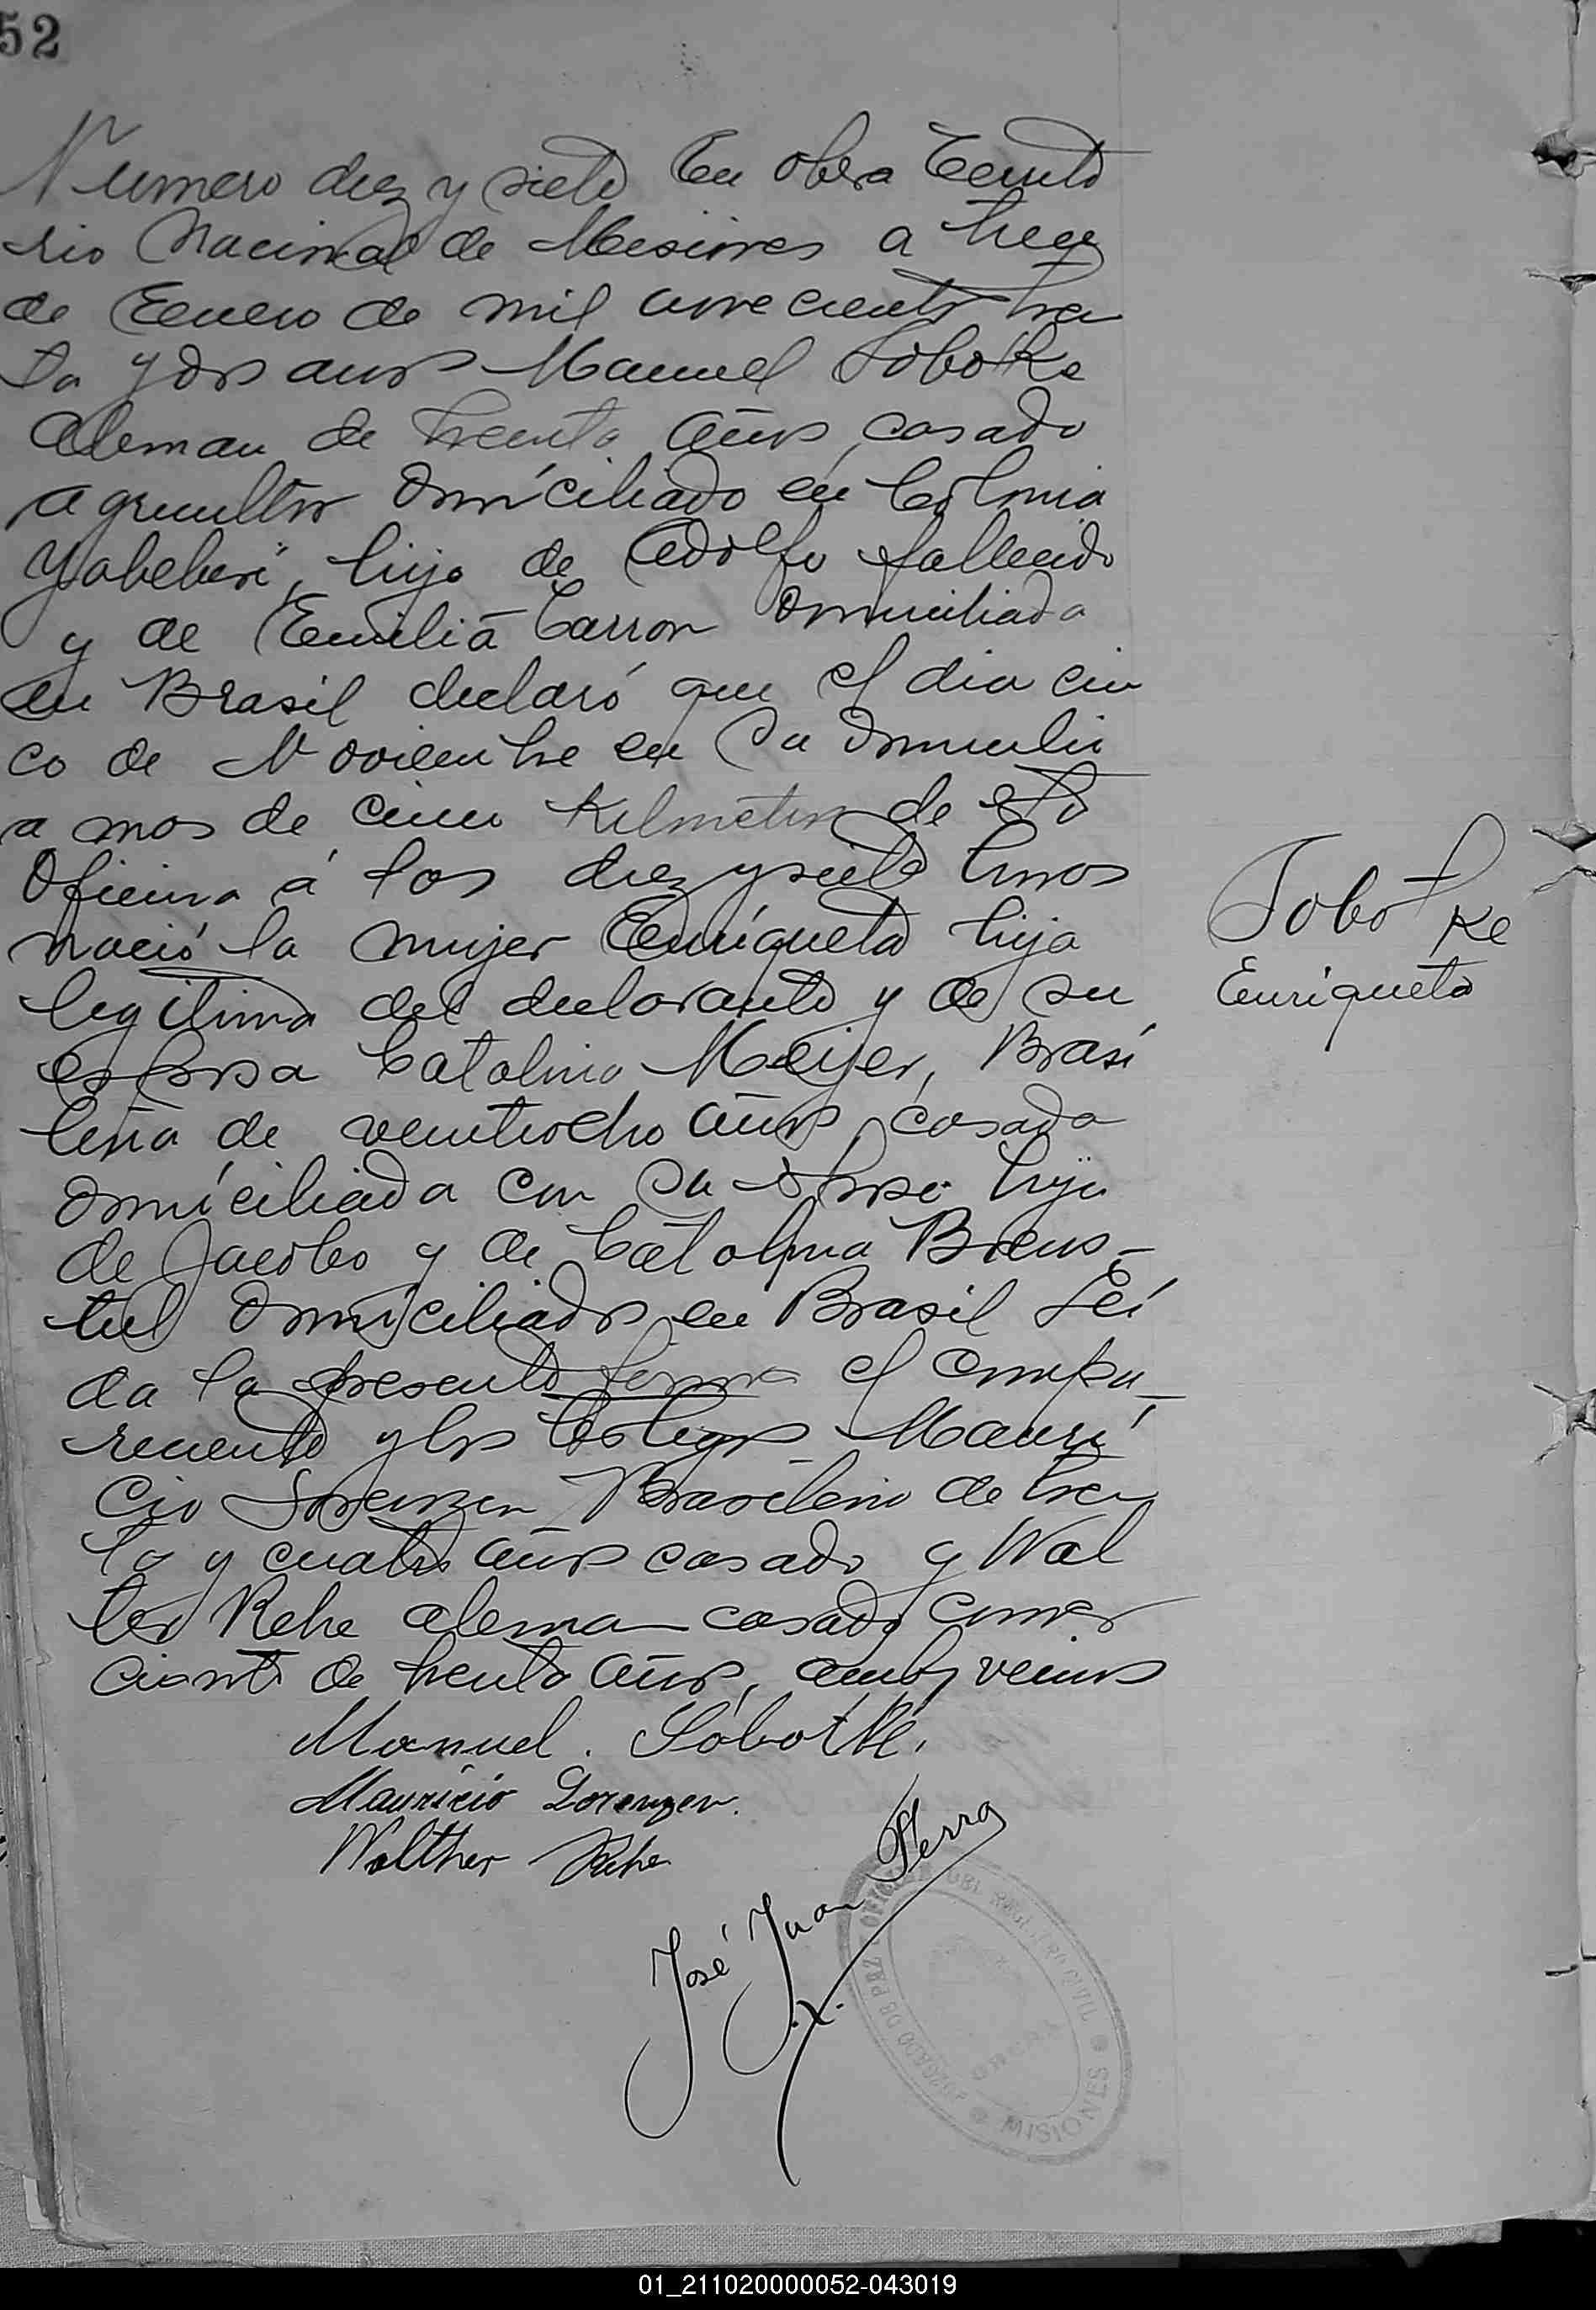 52
Numero diez y siete En Obera Territo
rio Nacional de Misiones a trece
de Enero de mil novecientos trein
ta y dos años Manuel Sobotke
Aleman de treinta años, casado
agricultor domiciliado en Colonia
Yabeberi, hijo de Adolfo fallecido
y de Emilia Carron domiciliada
en Brasil declaró que el dia cin
co de Noviembre en su domicilio
a mas de cinco Kilometros de esta
Oficina á las diez y siete horas
nació la mujer Enriqueta hija
legitima del declarante y de su
esposa Catalina Meijer, Brasi
leña de veintiocho años, casada
domiciliada con su esposo hija
de Jacobo y de Catalina
domiciliados en Brasil Lei
da la presente firman el compa-
reciente y los testigos Mauri
cio Lorenzen Brasileño de trein
ta y cuatro años casado y Wal
ter Rehe aleman casado comer
ciante de treinta años, ambos vecinos
Manuel. Sobotke.
Mauricio Lorenzen.
Walther Rehe
José Juan Serra
JUZGADO DE PAZ Y OFICINA DEL REGISTRO CIVIL
OBERA
MISIONES
Sobotke
Enriqueta
01_211020000052-043019